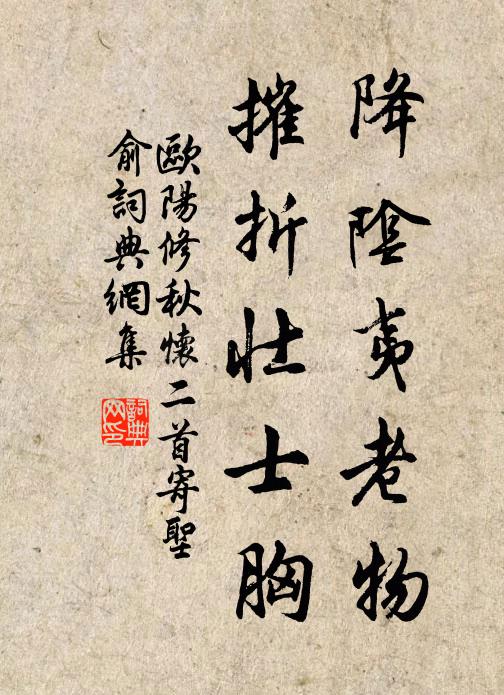 降陰夷老物
摧折壮士胸
歐陽修秋懷二首寄聖
俞詞典網集
詞典
网印